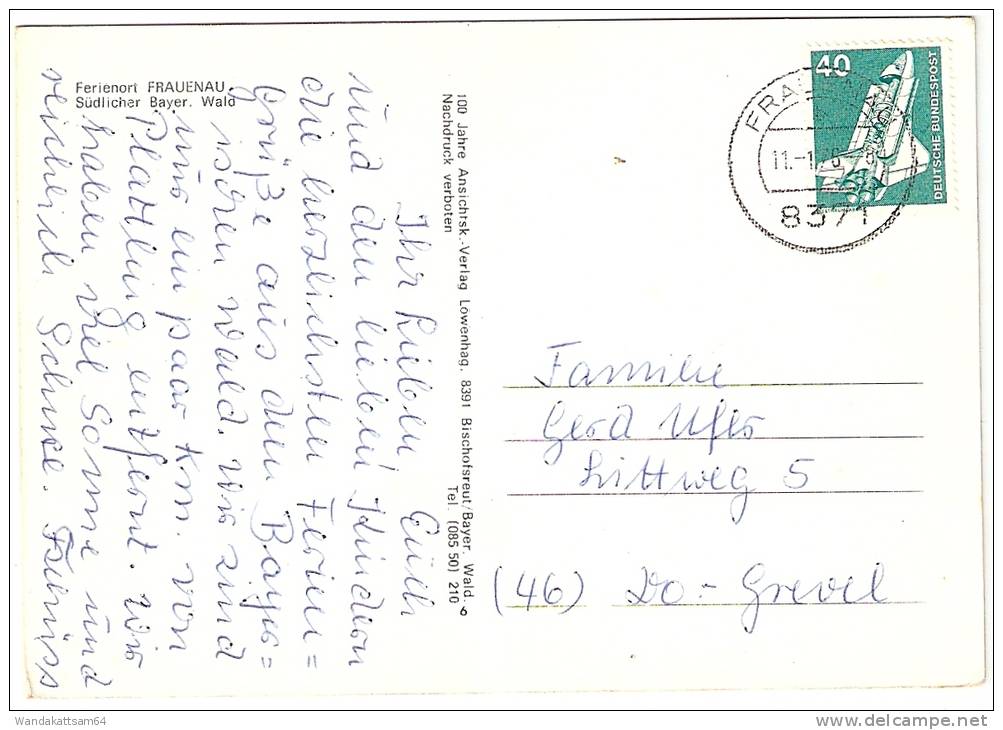 Ferienort FRAUENAU
Südlicher Bayer. Wald
Ihr Lieben! Euch
und den lieben Kindern
die herzlichsten Ferien=
grüße aus dem Bayer=
ischen Wald. Wir sind
nur ein paar km. von
Plattling entfernt. Wir
haben viel Sonne und
reichlich Schnee.
100 Jahre Ansichtsk.-Verlag Löwenhag, 8391 Bischofsreut/Bayer. Wald.
Nachdruck verboten Tel. (085 50) 210
40
DEUTSCHE BUNDESPOST
8371
Familie
Gerd
Littweg 5
(46) Do-Grevel
Wandakattsam64
delcampe.net